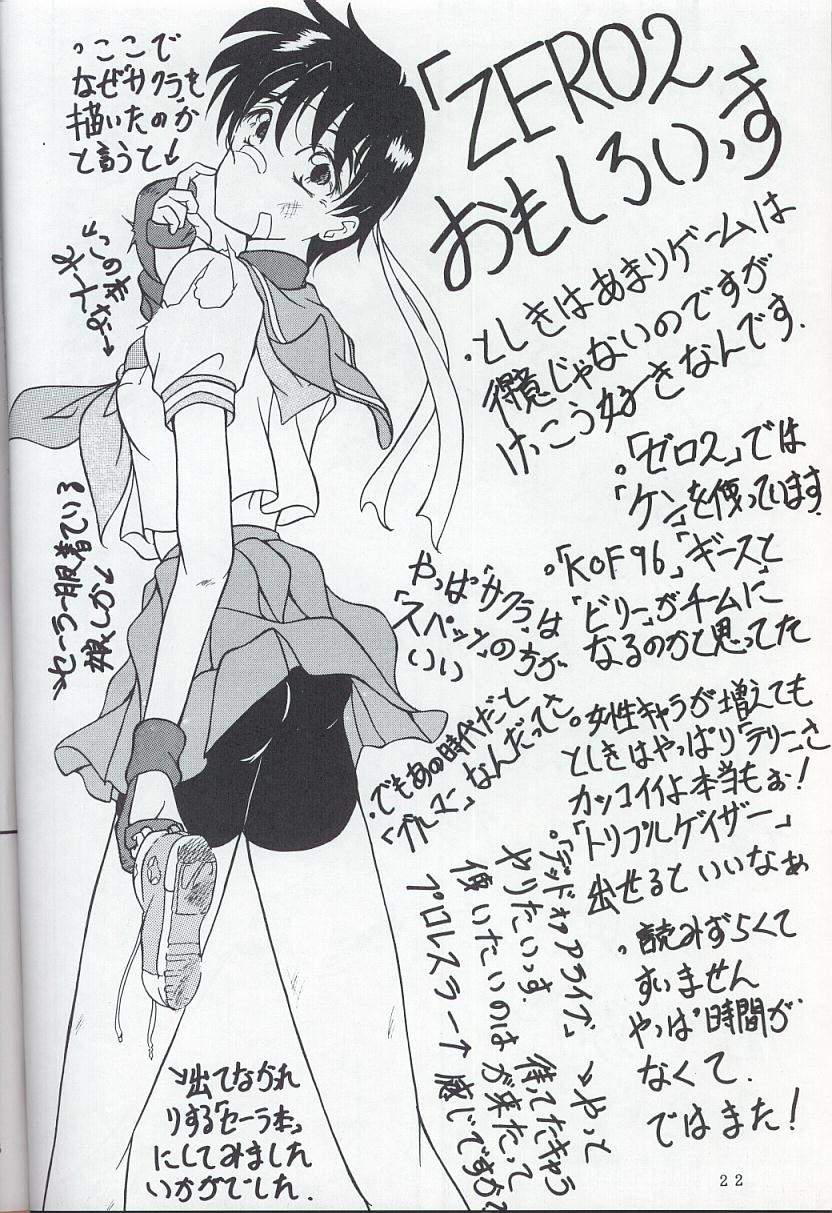 「ZERO2
おもしろいっす
・としきはあまりゲームは
得意じゃないのですが
けっこう好きなんです.
・「ゼロ2」では
「ケン」を使っています
・「KOF96」「ギース」と
「ビリー」がチームに
なるのかと思ってた
・女性キャラが増えても
としきはやっぱり「テリー」さ
カッコイイよ本当もぉ!
「トリプルゲイザー」
出せるといいなぁ
・読みずらくて
すいません
やっぱ時間が
なくて.
ではまた!
・ここで
なぜ「サクラ」を
描いたのか
と言うと↓
やっぱ「サクラ」は
「スパッツ」の方が
いい
・でもあの時代だし
「ブルマー」なんだってさ
・「デッドオアアライブ」
やりたいっす.
使いたいのは
プロレスラー↑
↘やっと
待ってたキャラ
が来たって
感じですか?
↘出てながれ
りする「セーラー本」
にしてみました
いかがでした.
22